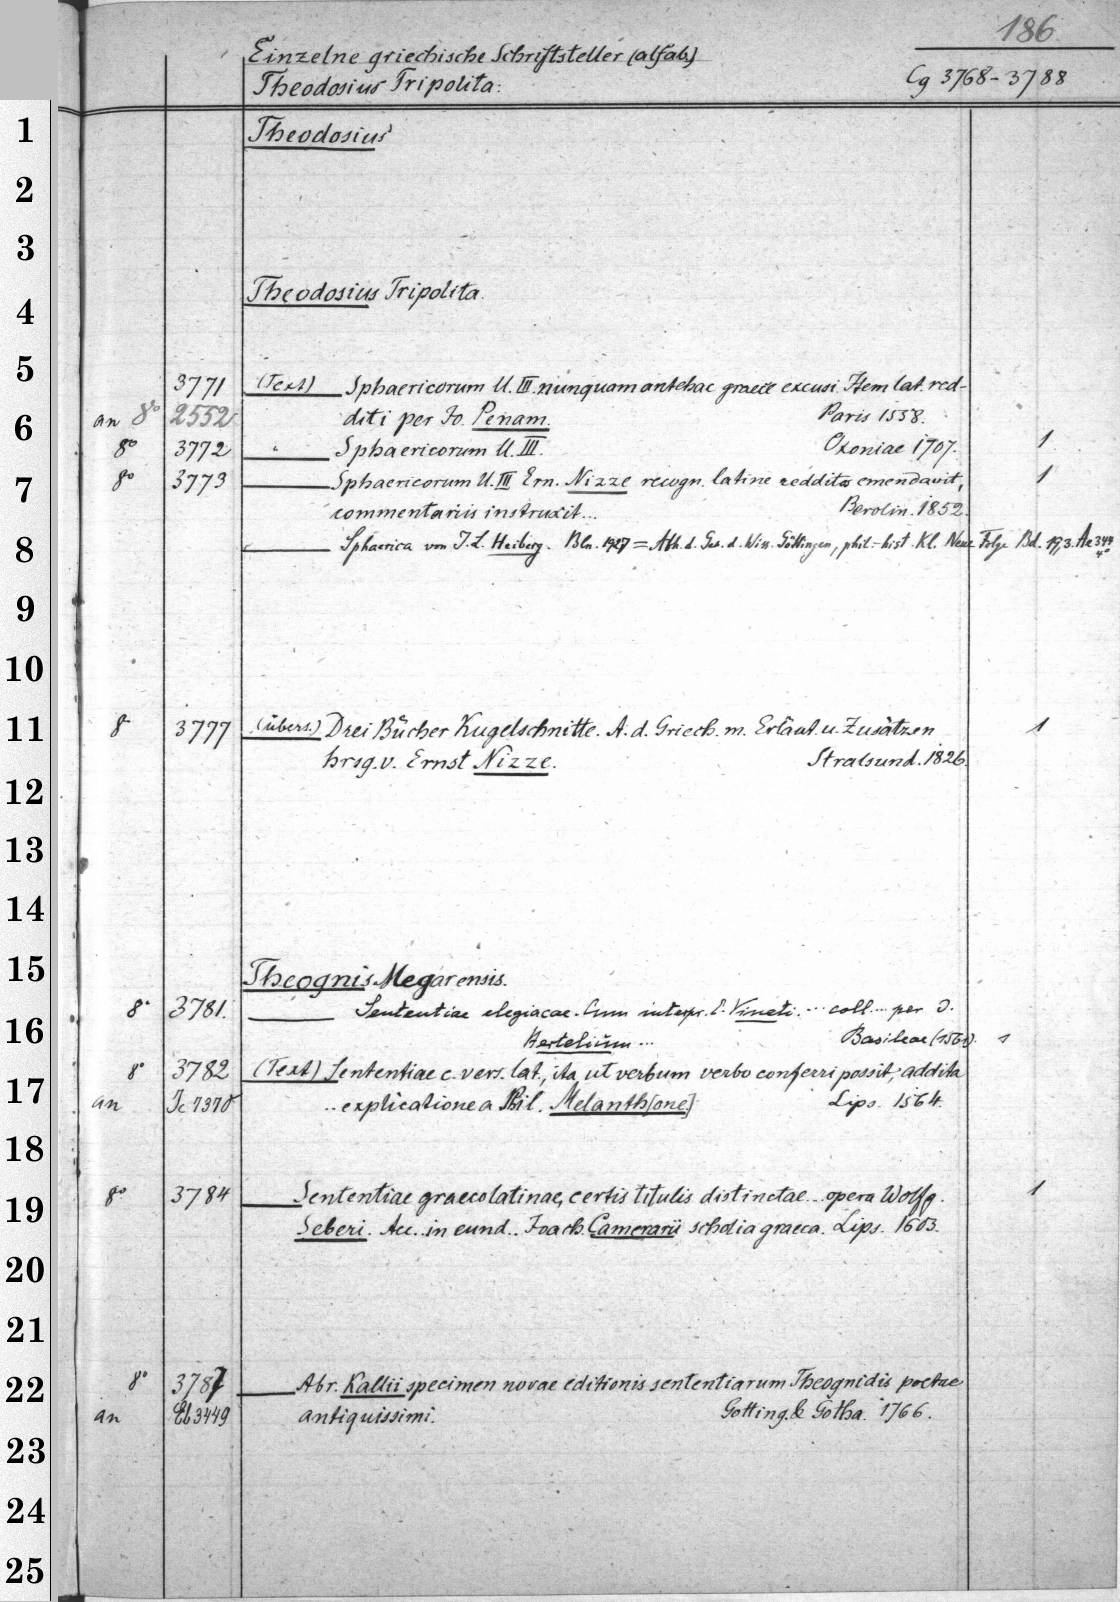 186
Einzelne griechische Schriftsteller (alfab.)
Theodosius Tripolita: Cg 3768-3788
1 Theodosius
2
3
4 Theodosius Tripolita.
5 3771 (Text) Sphaericorum ll. III. nunquam antehac graece excusi. Item lat. red-
6 an 8° 2552 diti per Jo. Penam. Paris 1558.
8° 3772 " Sphaericorum ll. III. Oxoniae 1707. 1
7 8° 3773 Sphaericorum ll. III Ern. Nizze recogn. latine redditos emendavit, 1
commentariis instruxit... Berolin. 1852.
8 Sphaerica von J. L. Heiberg. Bln. 1927 = Abh. d. Ges. d. Wiss. Göttingen, phil.-hist. Kl. Neue Folge Bd. 19,3. Ac 344 4°
9
10
11 8° 3777 (übers.) Drei Bücher Kugelschnitte. A. d. Griech. m. Erläut. u. Zusätzen 1
hrsg. v. Ernst Nizze. Stralsund. 1826.
12
13
14
15 Theognis Megarensis.
8° 3781. Sententiae elegiacae. Cum interpr. E. Vineti. ... coll... per J.
16 Hertelium ... Basileae (1561). 1
17 8° 3782 (Text) Sententiae c. vers. lat., ita ut verbum verbo conferri possit, addita
an Ic 7370 .. explicatione a Phil. Melanth[one] Lips. 1564.
18
19 8° 3784 Sententiae graecolatinae, certis titulis distinctae... opera Wolfg. 1
Seberi. Acc. in eund.. Joach. Camerarii scholia graeca. Lips. 1603.
20
21
22 8° 3787 Abr. Kallii specimen novae editionis sententiarum Theognidis poetae
an Eb 3449 antiquissimi. Gotting. & Gotha. 1766.
23
24
25